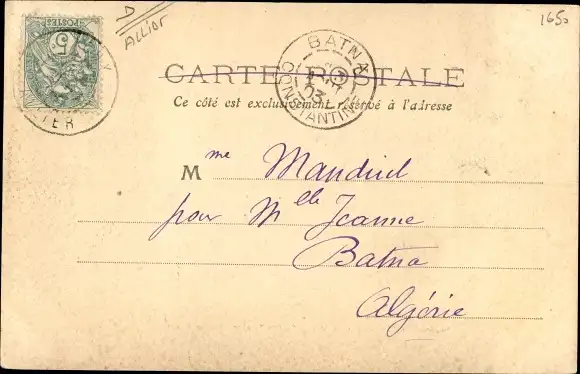 Allier
1650
POSTES
5c
BATNA
CONSTANTINE
03
CARTE POSTALE
Ce côté est exclusivement réservé à l'adresse
Mme Manduel
pour Mlle Jeanne
Batna
Algérie